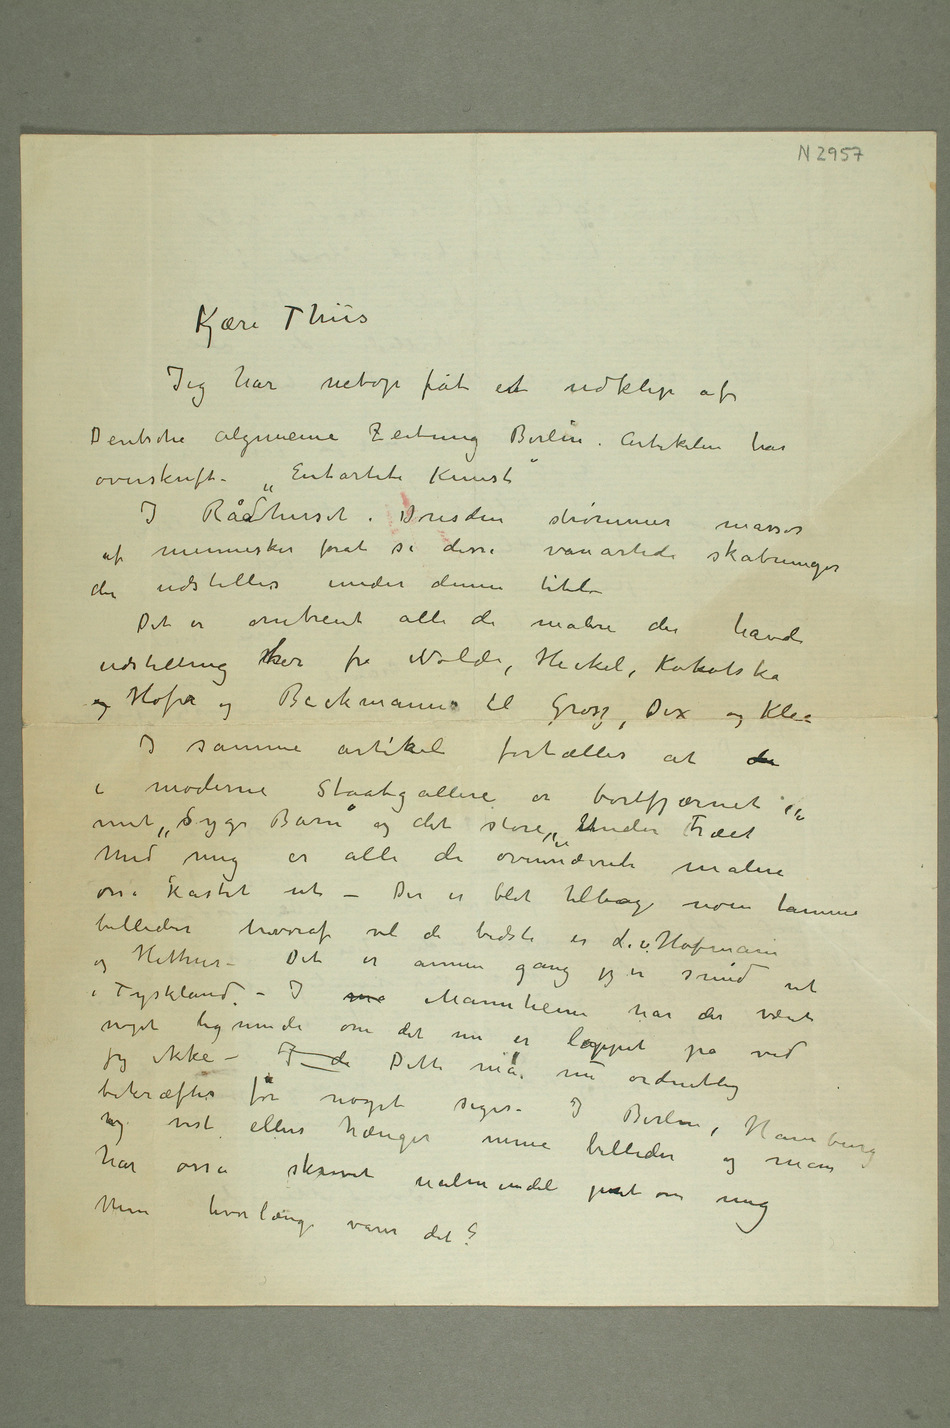 N 2957
Kjære Thiis
Jeg har netop fåt et udklip af
Deutsche algmeine Zeitung Berlin. Artikelen har
overskrift – „Entartete Kunst“
I Rådhuset i Dresden strømmer masser
af mennesker forat se disse vanartede skabninger
der udstilles under denne titel –
Det er omtrent alle de malere der havde
udstilling her fra Nolde, Heckel, Kokotska
og Hofer og Beckmann til Grosz, Dix og Klee
I samme artikel fortælles at der
i moderne Staatsgallerie er bortfjærnet
mit „Syge Barn“ og det store „Under Træet“
Med mig er alle de ovennævnte malere
osså kastet ut – Der er blot tilbage noen tamme
billeder hvoraf vel de bedste er L. v. Hofmann
og Hettner – Det er annen gang jeg er smidt ut
i Tyskland. – I ma Mannheim har der vært
noget lignende om det nu er lappet på ved
jeg ikke – I de Dette må nu ordentlig
bekræftes før noget siges – I Berlin, Hamburg
og vist ellers hænger mine billeder og man
har osså skrevet ualmindel pent om mig
Men hvorlænge varer det?